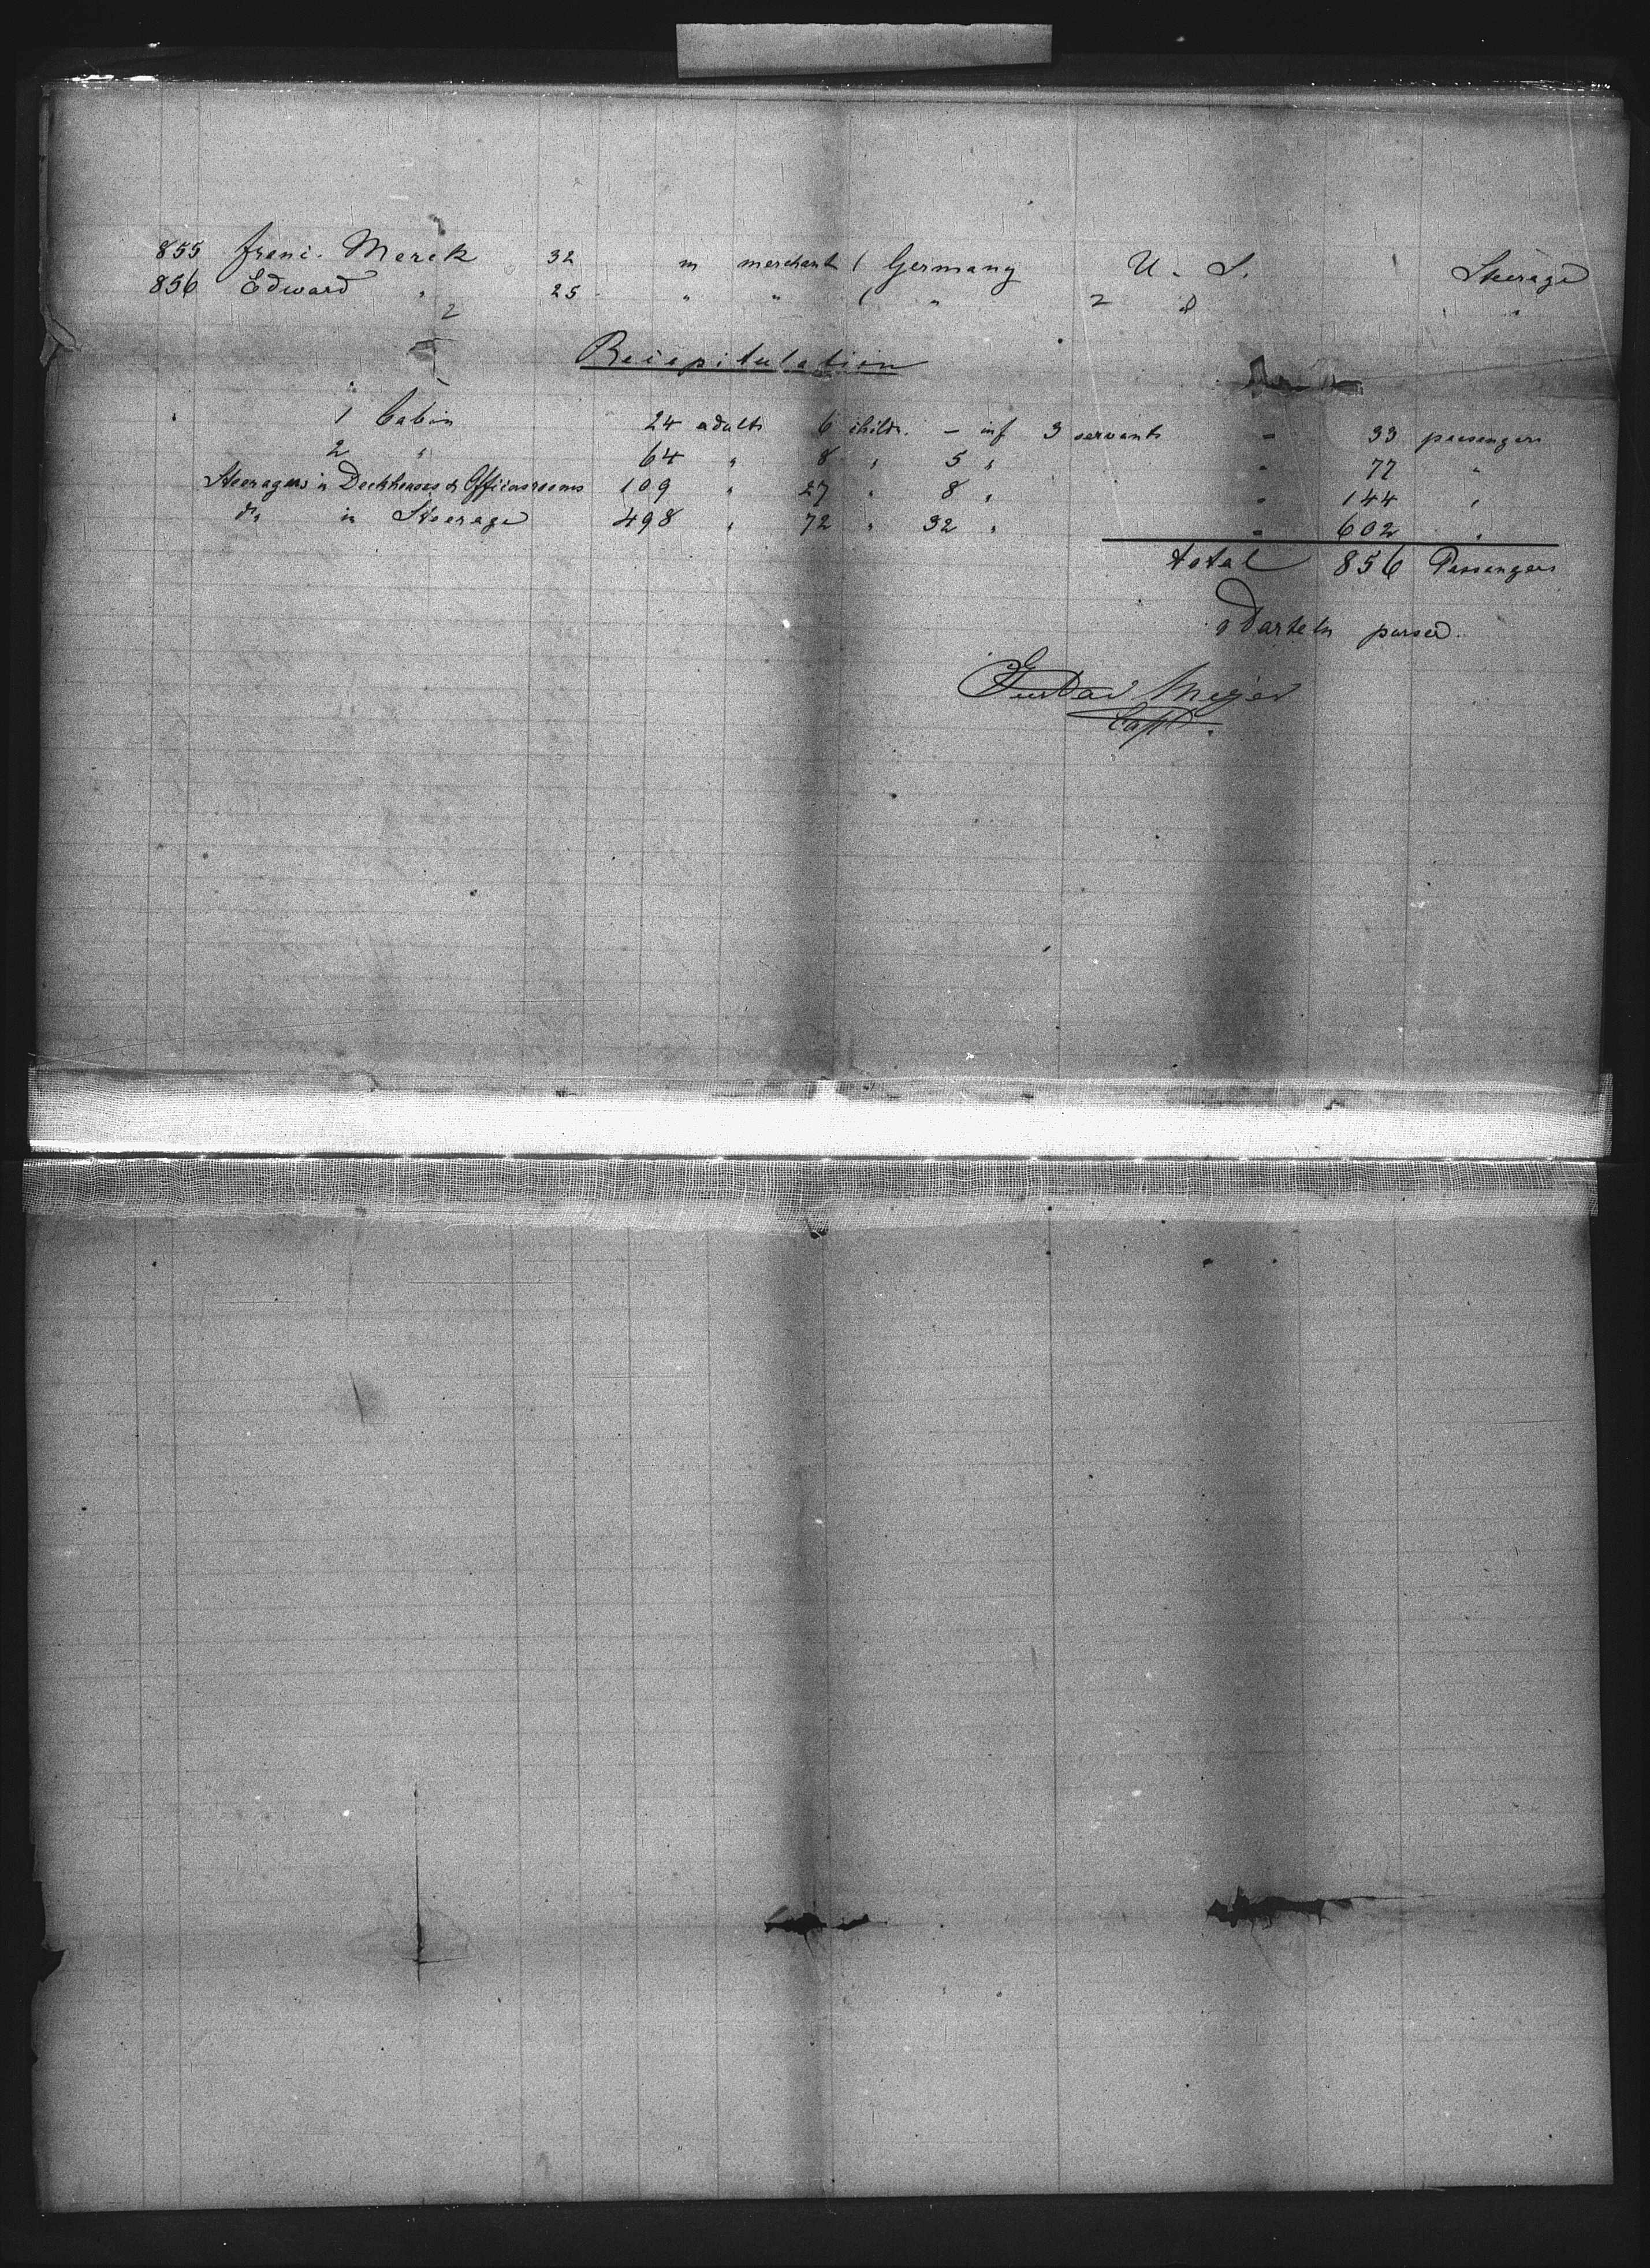 855 Franc. Merck 32 m merchant ( Germany U. S. Steerage
856 Edward " 25 " " ( " "
2 2
Recapitulation
1 Cabin 24 adults 6 childr. — inf 3 servants = 33 passengers
2 " 64 " 8 " 5 " = 77 "
Steeragers in Deckhouses & Officersrooms 109 " 27 " 8 " = 144 "
do in Steerage 498 " 72 " 32 " = 602 "
total 856 Passengers
purser.
Gustav Meyer
Capt.